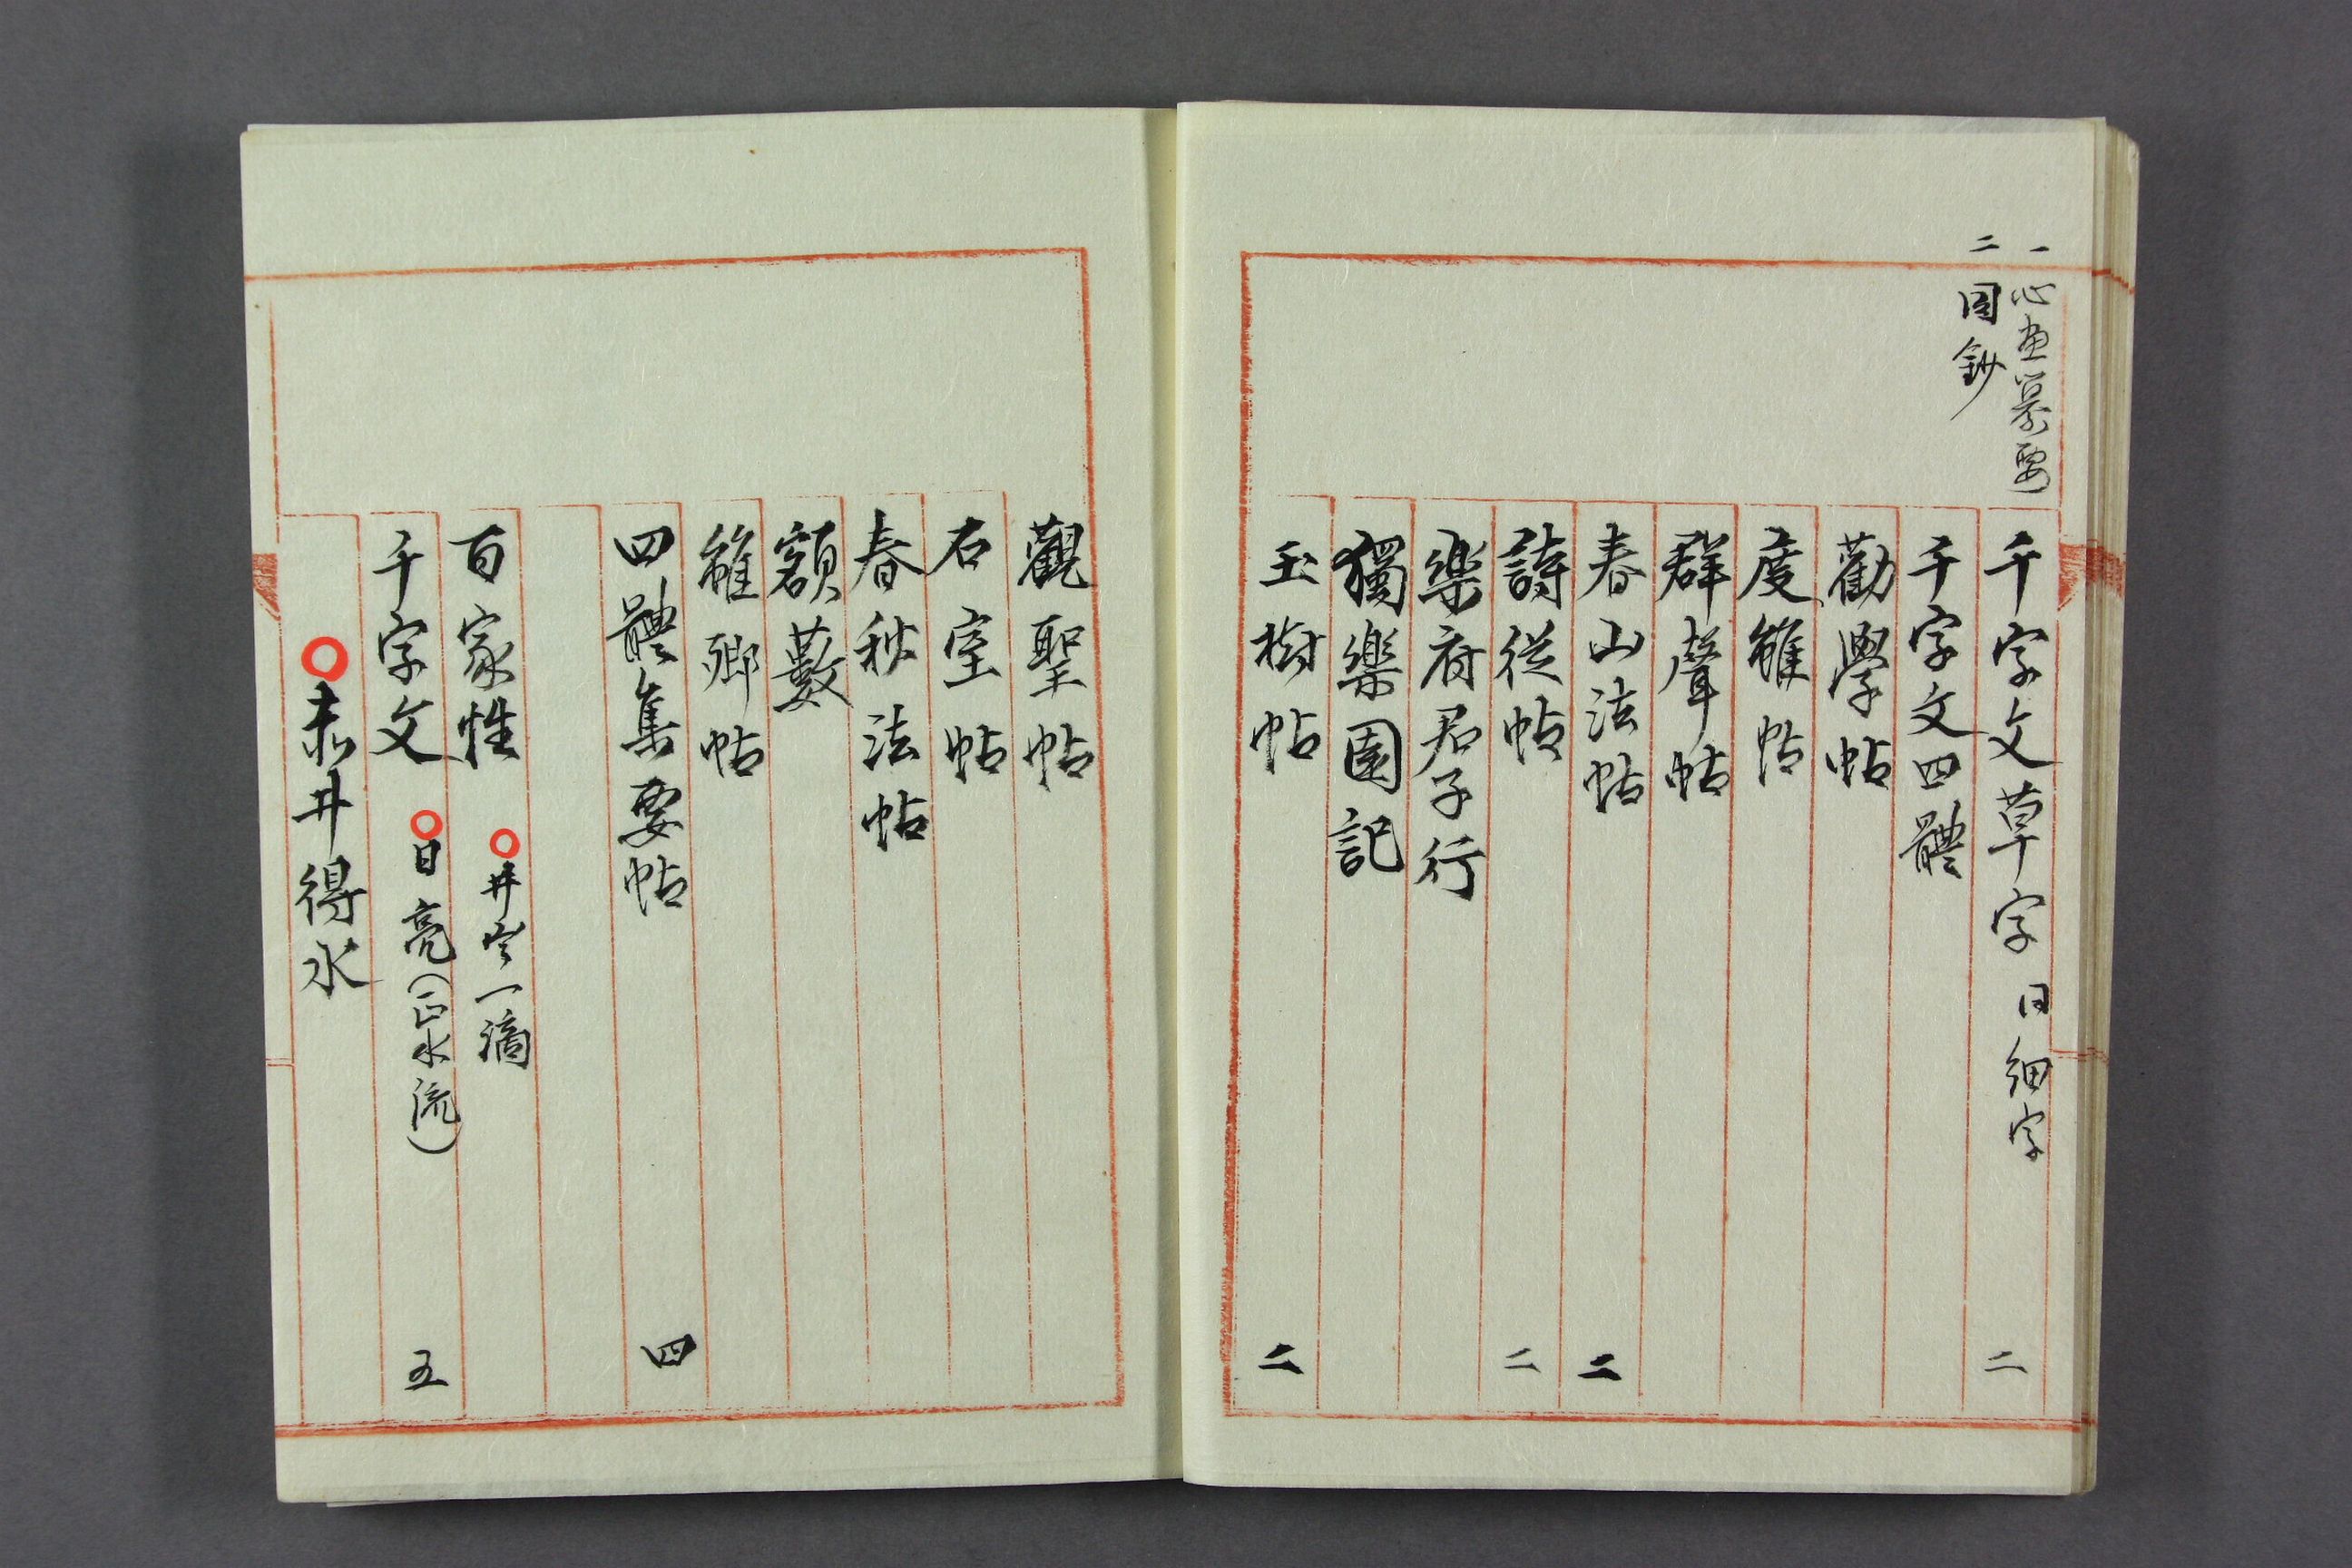 一 心画纂要
二 同鈔
千字文草字 日細字 二
千字文四體
勸學帖
度雒帖
群聲帖
春山法帖 二
詩從帖 二
樂府君子行
獨樂園記
玉樹帖 二
觀聖帖
石室帖
春秋法帖
額藪
雒鄉帖
四體集要帖 四
百家性 〇井出一滴
千字文 〇日亮(正水流) 五
〇耒井得水